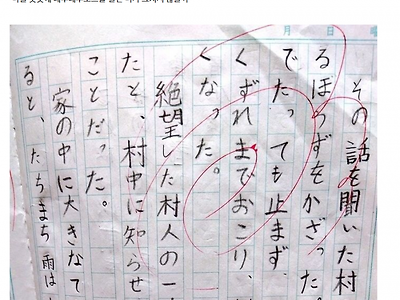 その話を聞いた村
るほうずをかざった
でたっても止まず、
くずれまでおこり、
くなった。
絶望した村人の一
たと、村中に知らせ
ことだった。
家の中に大きなて
ると、たちまち雨は